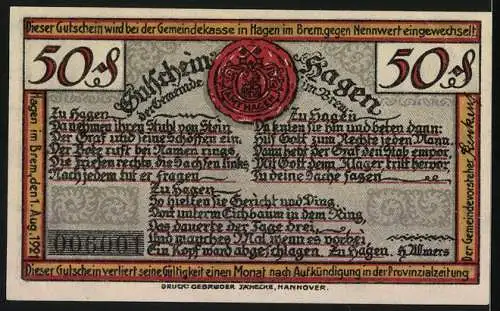 Dieser Gutschein wird bei der Gemeindekasse in Hagen im Brem. gegen Nennwert eingewechselt.
50 ₰
Gutschein Hagen
der Gemeinde im Brem.
50 ₰
AMT HAGEN
Zu Hagen
Da nehmen ihren Stuhl von Stein
Der Graf und seine Schöffen ein.
Der Bote ruft bei Namen rings
Die Friesen rechts, die Sachsen links,
Nach jedem tut er fragen
Zu Hagen
Da knien sie hin und beten dann:
Hilf Gott zum Rechte jedem Mann
Dann hebt der Graf den Stab empor
Mit Gott denn, Kläger tritt hervor
Zu deine Sache sagen
Zu Hagen
So hielten sie Gericht und Ding,
Dort unterm Eichbaum in dem Ring,
Das dauerte der Tage drei,
Und manches Mal, wenn es vorbei
Ein Kopf ward abgeschlagen. Zu Hagen. H. Allmers
Hagen im Brem., den 1. Aug. 1921
Der Gemeindevorsteher
006001
Dieser Gutschein verliert seine Gültigkeit einen Monat nach Aufkündigung in der Provinzialzeitung
DRUCK: GEBRÜDER JÄNECKE, HANNOVER.